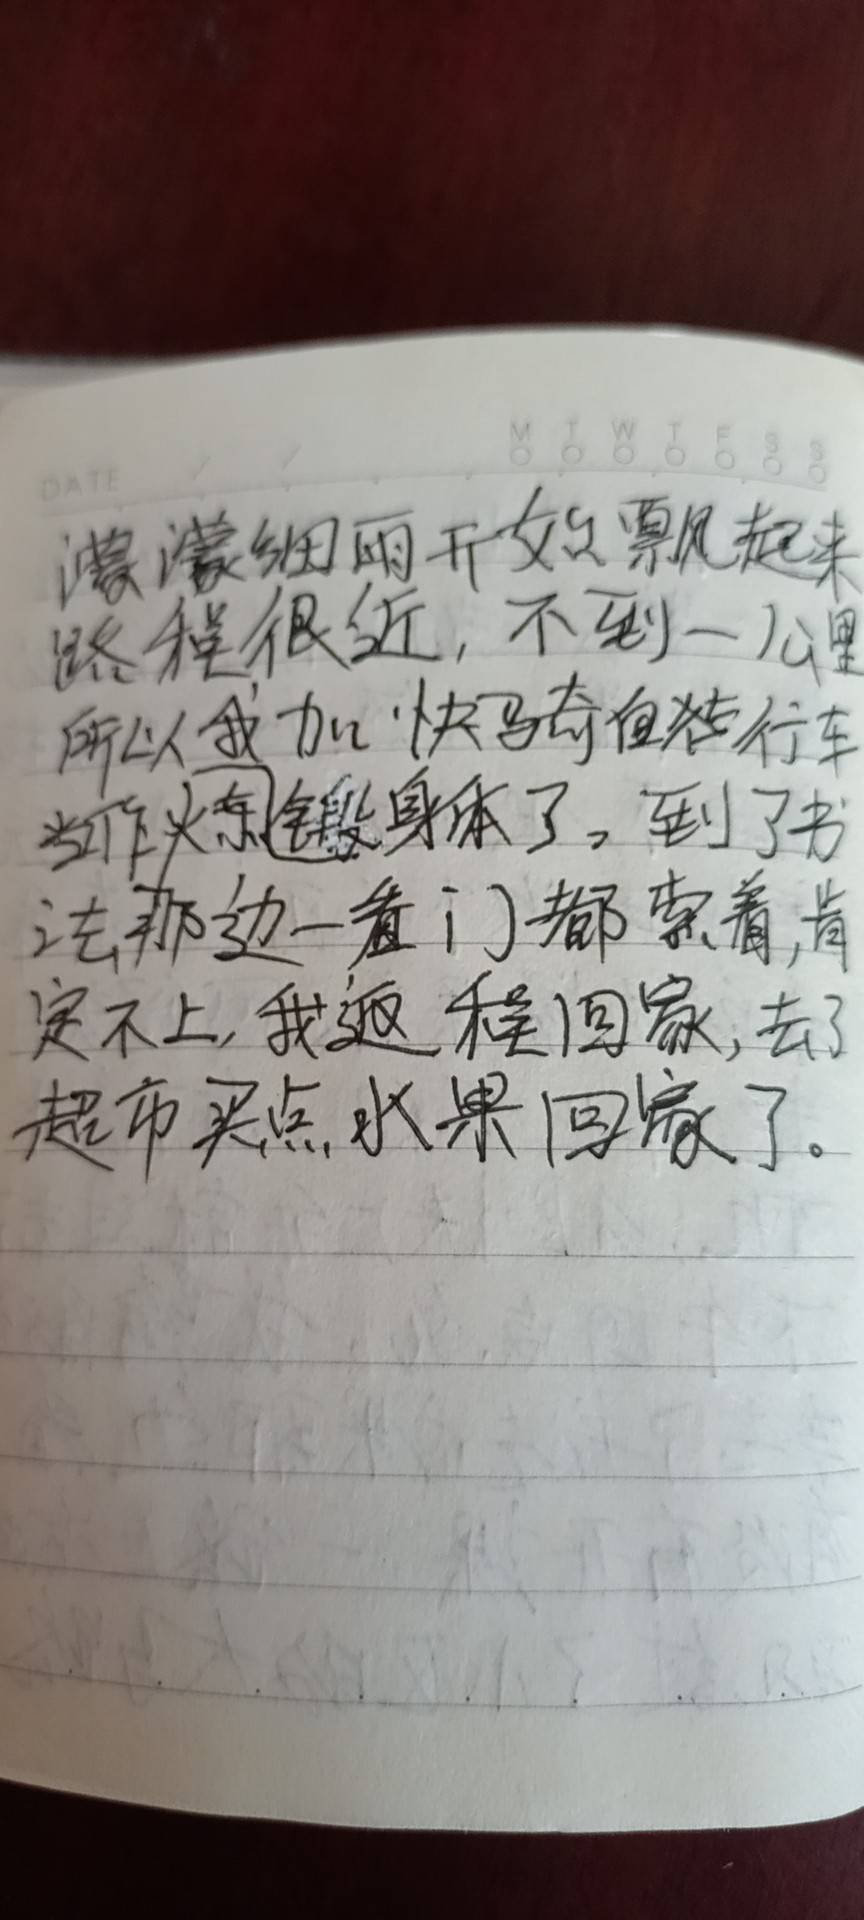 DATE / / M T W T F S S
濛濛细雨开始飘起来
路程很近,不到一公里
所以我加快马奇自装行车
当作火东锻身体了。到了书
法那边一看门都索着,肯
定不上,我返程回家,去了
超市买点水果回家了。